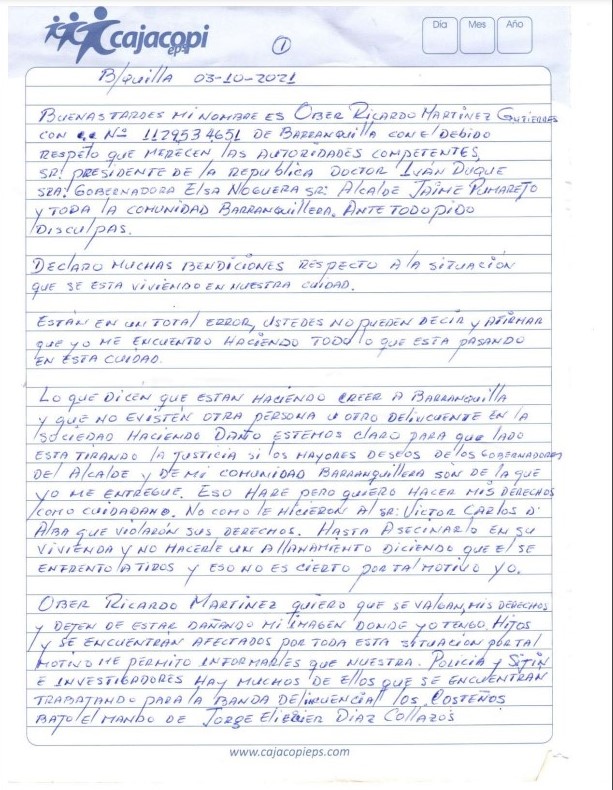 cajacopi
eps
1
Día Mes Año
B/quilla 03-10-2021
BUENAS TARDES MI NOMBRE ES OBER RICARDO MARTINEZ GUTIERRES
CON Nº 1129534651 DE BARRANQUILLA CON El DEBIDO
RESPETO QUE MERECEN lAS AUTORIDADES COMPETENTES,
SR! PRESIDENTE DE lA REPUBLICA DOCTOR IVÁN DUQUE
SRA! GOBERNADORA ELSA NOGUERA SR: AlCAlDE JAIME PUMAREJO
Y TODA lA COMUNIDAD BARRANQUILLERA. ANTE TODO PIDO
DISCUlPAS.
DECLARO MUCHAS BENDICIONES RESPECTO A lA SITUACIÓN
QUE SE ESTA VIVIENDO EN NUESTRA CUIDAD.
ESTÁN EN UN TOTAL ERROR, USTEDES NO PUEDEN DECIR Y AFIRMAR
QUE YO ME ENCUENTRO HACIENDO TODO lO QUE ESTA PASANDO
EN ESTA CUIDAD.
LO QUE DICEN QUE ESTAN HACIENDO CREER A BARRANQUILLA
Y QUE NO EXISTEN OTRA PERSONA U OTRO DELINCUENTE EN lA
SOCIEDAD HACIENDO DAÑO ESTEMOS CLARO PARA QUE LADO
ESTA TIRANDO lA JUSTICIA SI lOS MAYORES DESEOS DE lOS GOBERNADORES
DEL AlCAlDE Y DE MI COMUNIDAD BARRANQUILLERA SON DE lA QUE
YO ME ENTREGUE. ESO HARE PERO QUIERO HACER MIS DERECHOS
COMO CUIDADANO. NO COMO lE HICIERON Al SR: VICTOR CARLOS D'
ALBA QUE VIOLARÓN SUS DERECHOS. HASTA ASECINARlO EN SU
VIVIENDA Y NO HACERlE UN AllANAMIENTO DICIENDO QUE El SE
ENFRENTO A TIROS Y ESO NO ES CIERTO POR TAl MOTIVO YO.
OBER RICARDO MARTINEZ QUIERO QUE SE VALGAN, MIS DERECHOS
Y DEJEN DE ESTAR DAÑANDO MI IMAGEN DONDE YO TENGO, HIJOS
Y SE ENCUENTRAN AFECTADOS POR TODA ESTA SITUACIÓN POR TAl
MOTIVO ME PERMITO INFORMARLES QUE NUESTRA. POLICIA Y SIJIN
E INVESTIGADORES HAY MUCHOS DE EllOS QUE SE ENCUENTRAN
TRABAJANDO PARA lA BANDA DElINCUENCIAl lOS COSTEÑOS
BAJO El MANDO DE JORGE ELIECIER DIAZ COLLAZOS
www.cajacopieps.com